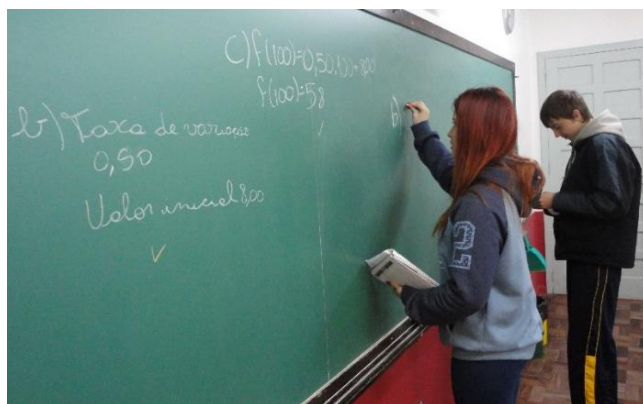 b) Taxa de variação
0,50
Valor inicial 8,00
c) f(100)=0,50.100+8,00
f(100)=58
b)
2